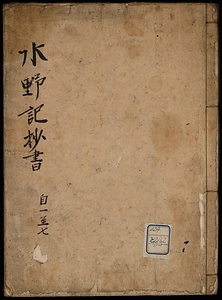 水野記抄書
自一至七